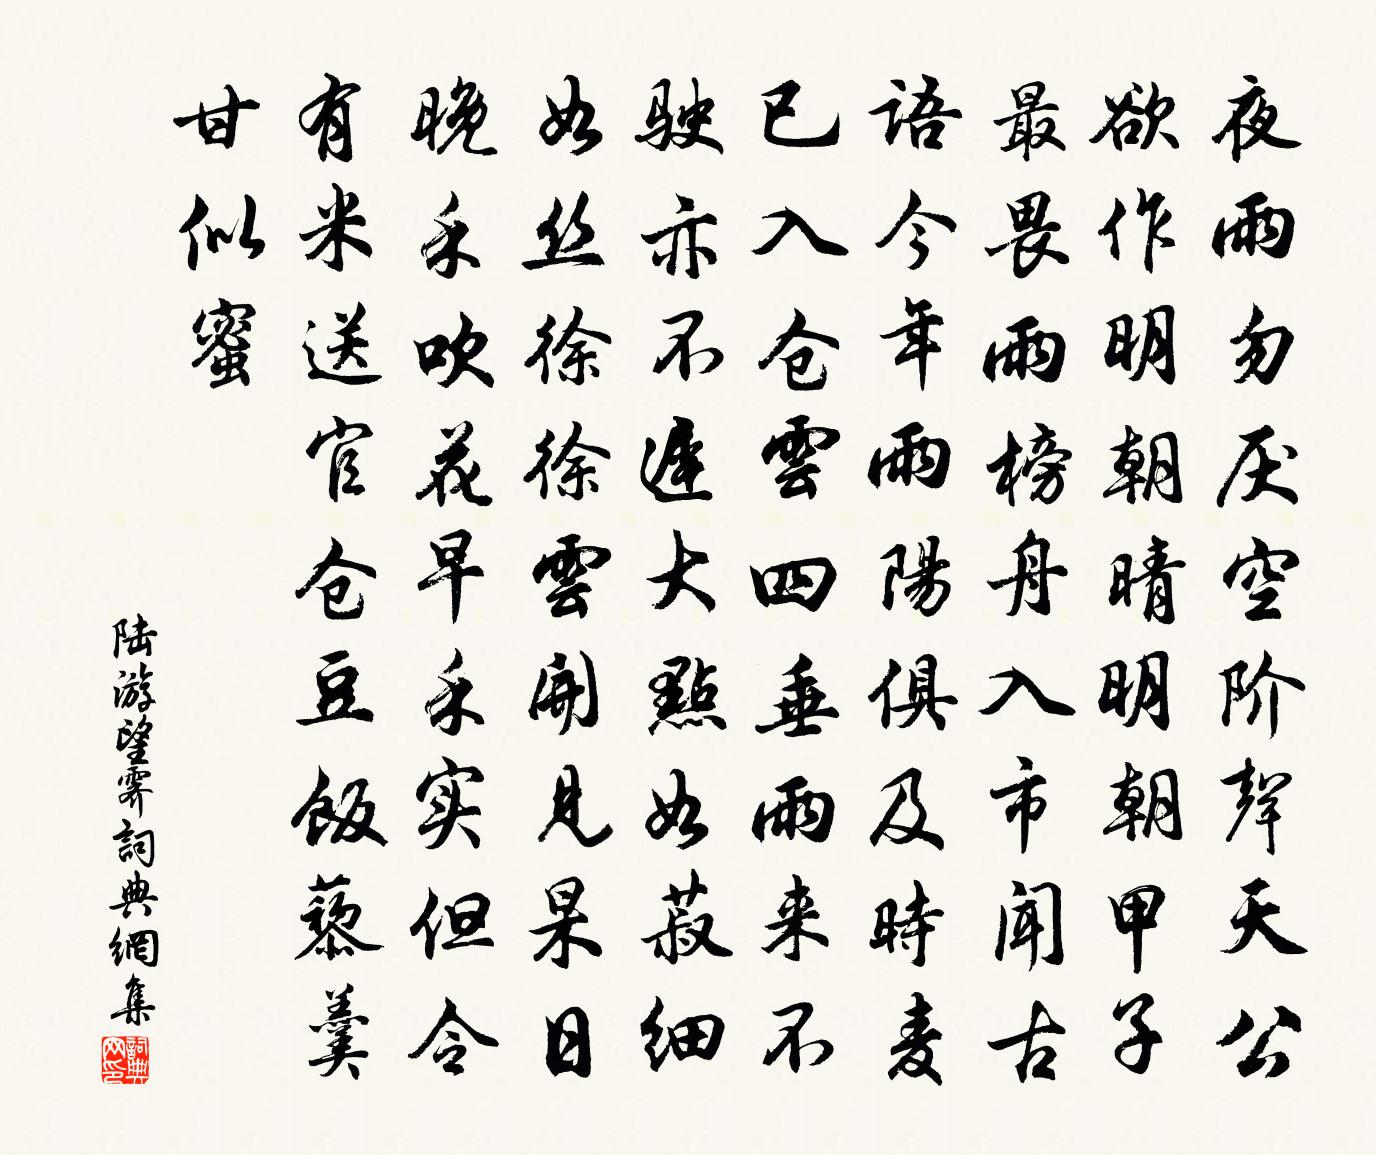 夜雨勿厌空阶聲天公
欲作明朝晴明朝甲子
最畏雨榜舟入市闻古
语今年雨陽俱及時麦
已入仓雲四垂雨来不
駛亦不遲大點如菽细
如丝徐徐雲開見杲日
晚禾吹花早禾实但令
有米送官仓豆飯藜羹
甘似蜜
陆游望霁詞典網集
詞典网印